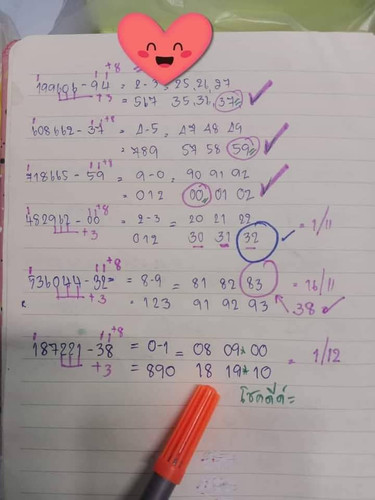 +8
199606-94 = 2-3 25,26,27
+3 = 567 35,36,37
+8
608662-37 = 4-5 47 48 49
= 789 57 58 59
+8
718665-59 = 9-0 90 91 92
= 012 00 01 02
+8
482962-00 = 2-3 = 20 21 22 = 1/11
+3 012 30 31 32
+8
536044-32= = 8-9 = 81 82 83 = 16/11
+3 = 123 91 92 93 38
+8
187221-38 = 0-1 = 08 09* 00 = 1/12
+3 = 890 18 19* 10
โชคดีค่ะ